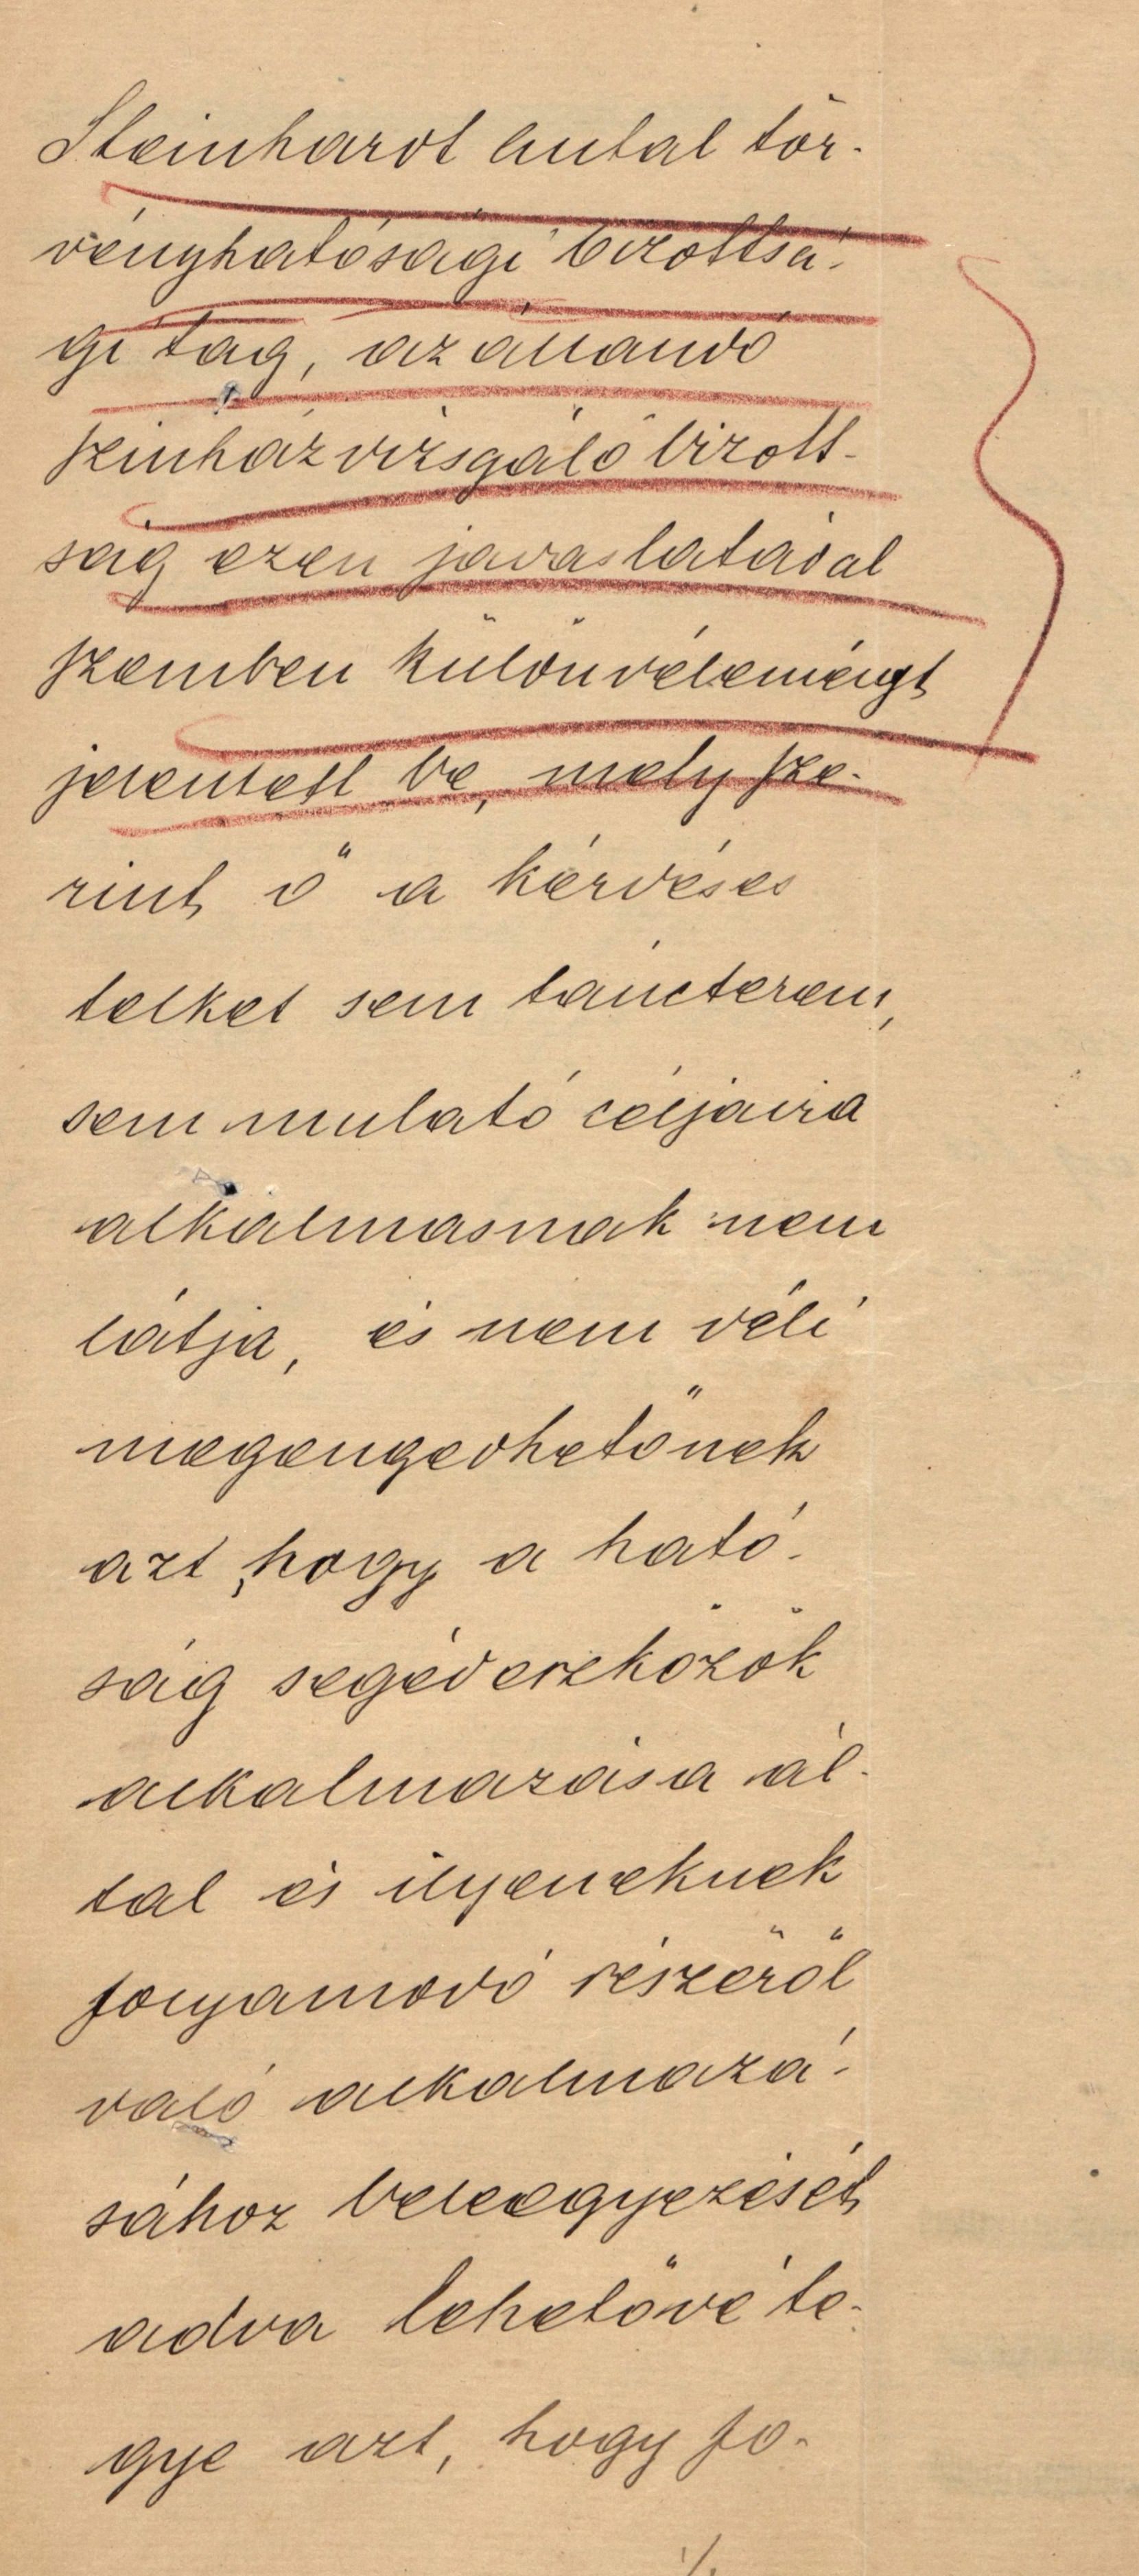 Steinhardt Antal tör-
vényhatósági bizottsá-
gi tag, az állandó
szinházvizsgáló bizott-
ság ezen javaslatával
szemben különvéleményt
jelentett be, mely sze-
rint ő a kérdéses
telket sem táncterem,
sem mulató céljaira
alkalmasnak nem
látja, és nem véli
megengedhetőnek
azt, hogy a ható-
ság segédeszközök
alkalmazása ál-
tal és ilyeneknek
folyamodó részéről
való alkalmazá-
sához beleegyezését
adva lehetővé te-
gye azt, hogy fo-
./.